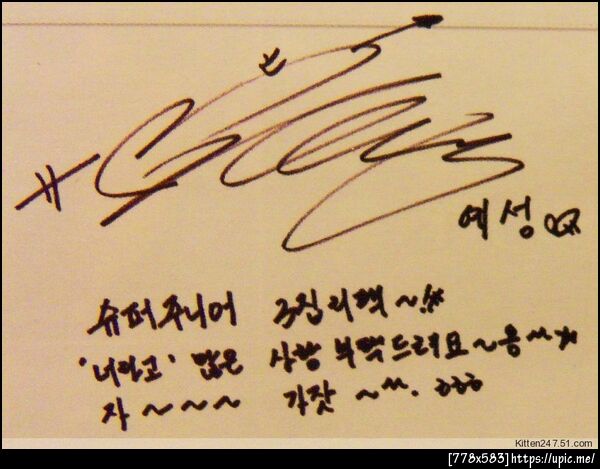 예성
슈퍼주니어 3집 리팩~!!*
'너라고' 많은 사랑 부탁드려요~용^^
자~~~ 가잣~^^. ㅎㅎㅎ
Kitten247.51.com
[778x583]https://upic.me/